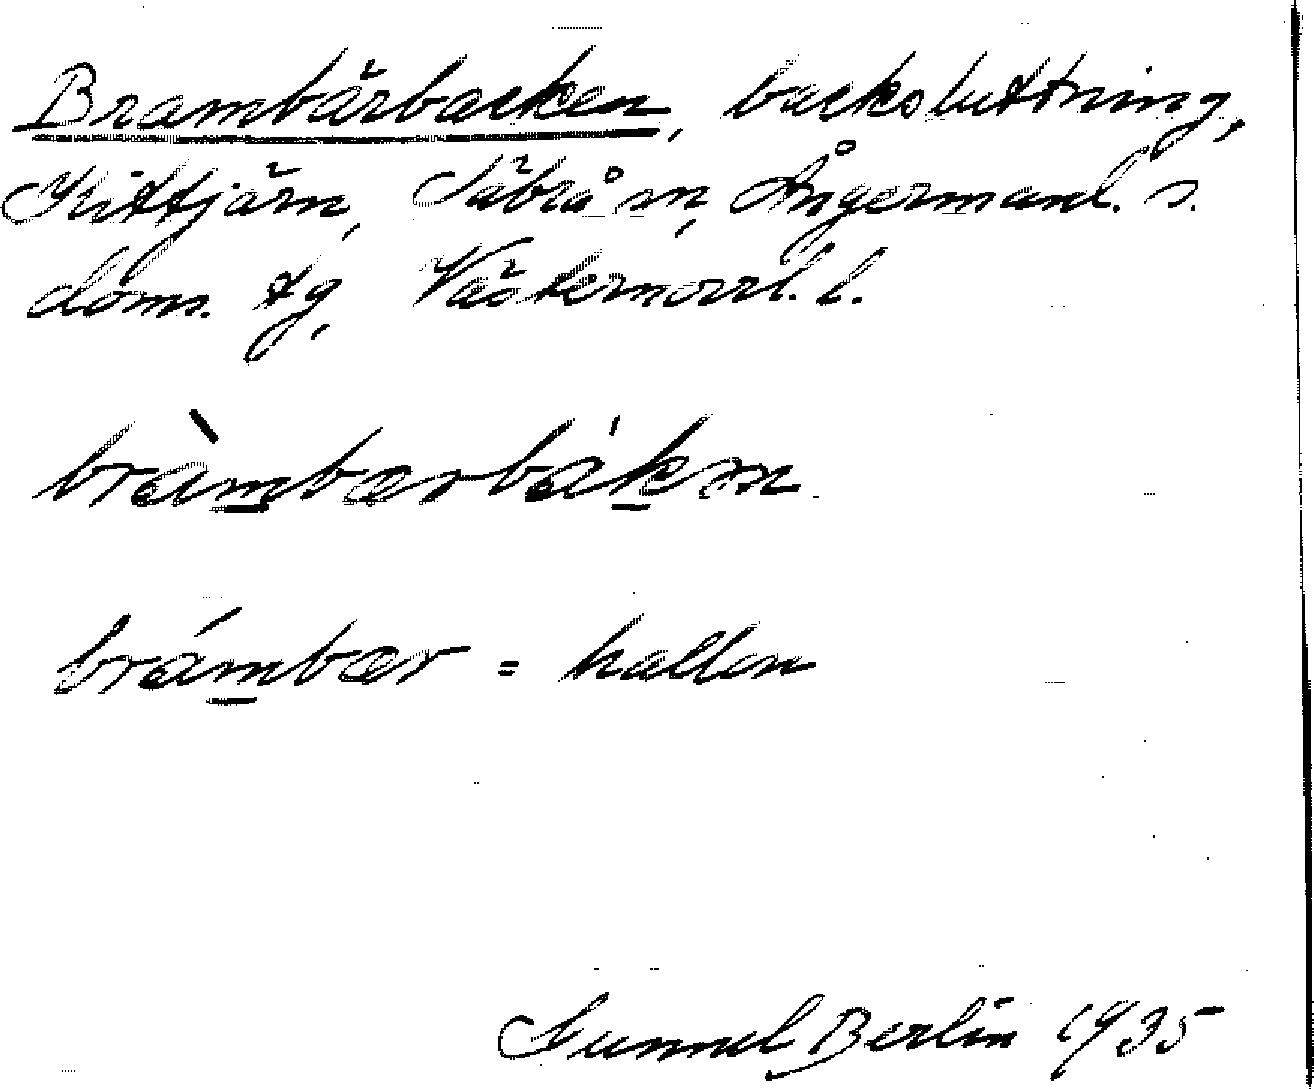 Brambärbacken, backsluttning,
Vittjärn, Säbrå sn, Ångermanl. s.
doms. tg, Västernorrl. l.
bràmbærbákən
brámbær = hallon
Gunnel Berlin 1935